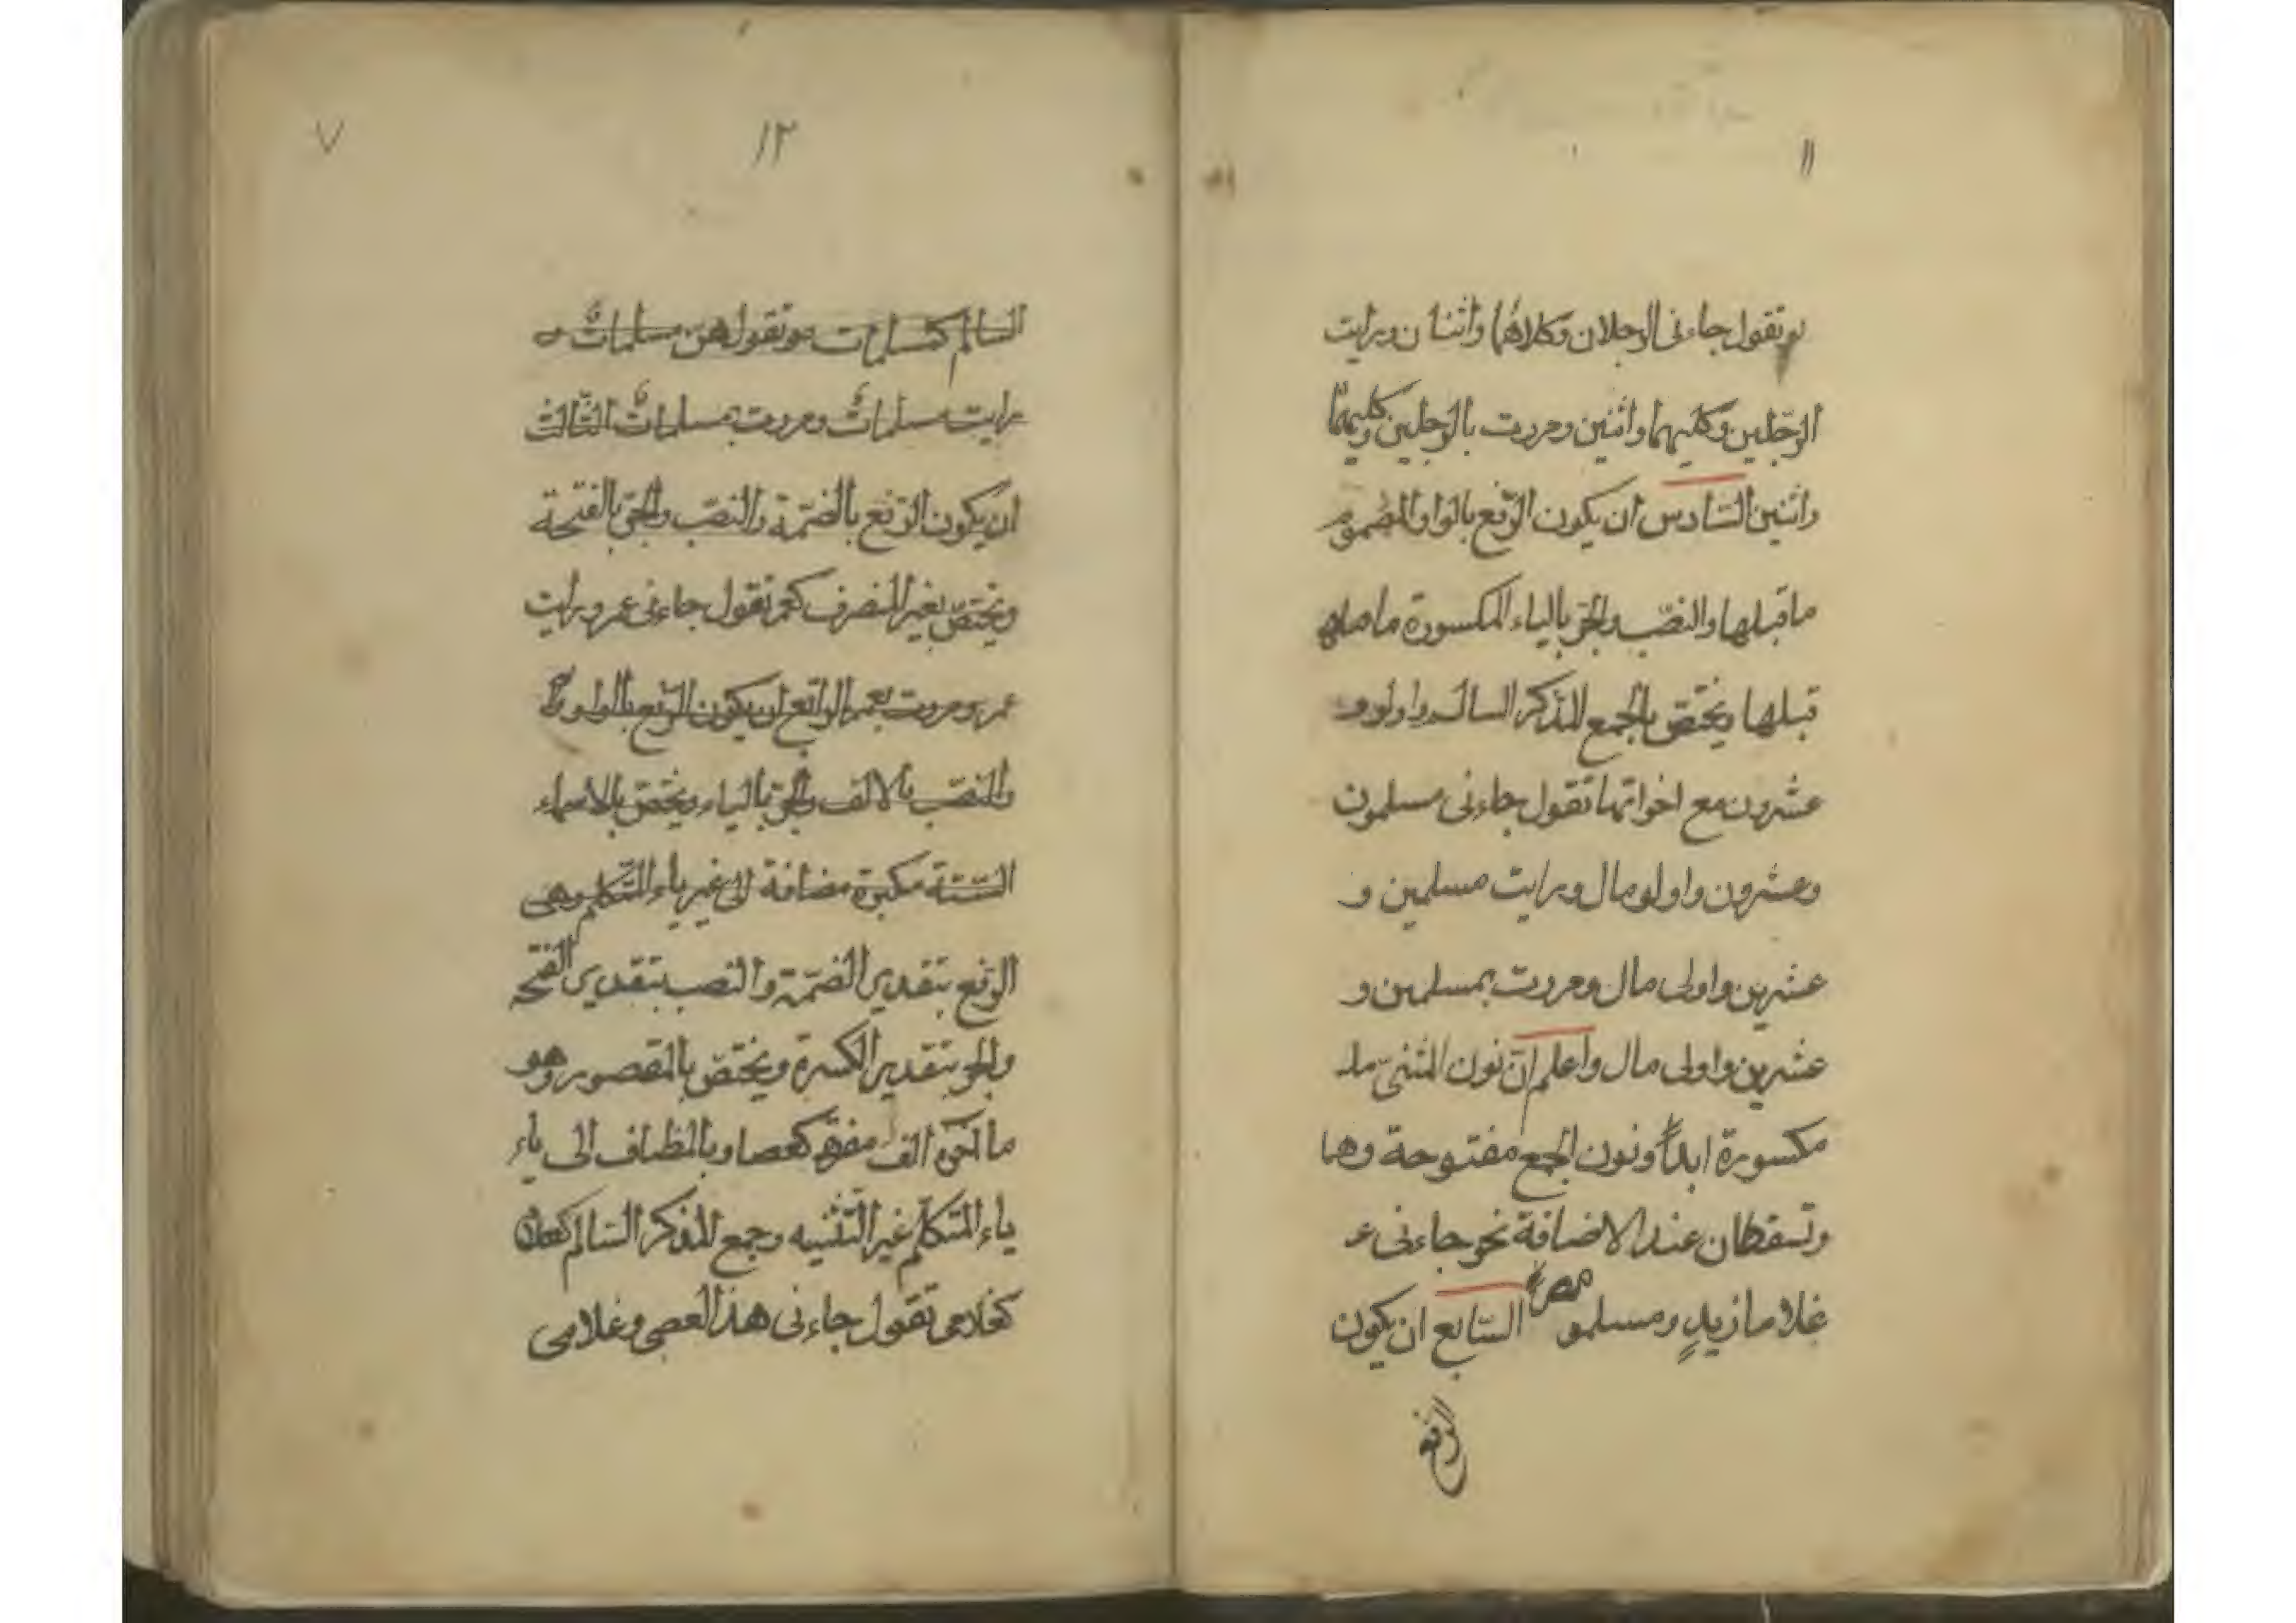 ١١
تقول جاءنى الرجلان وكلاهما واثنان ورايت
الرّجلين وكليهما واثنين ومررت بالرّجلين وكليهما
واثنين السّادس ان يكون الرّفع بالواو المضموم
ما قبلها والنصّب والجرّ بالياء المكسورة ما
قبلها ويختصّ بالجمع المذكر السالم واولو و
عشرون مع اخواتها تقول جاءنى مسلمون
وعشرون واولو مال ورايت مسلمين و
عشرين واولى مال ومررت بمسلمين و
عشرين واولى مال واعلم انّ نون المثنىّ
مكسورة ابداً ونون الجمع مفتوحة وهما
وتسقطان عند الاضافة نحو جاءنى
غلاما زيدٍ ومسلمو مصر السّابع ان يكون
الرفع
٧
١٢
السالم كمسلمات تقول هنّ مسلماتٌ
رايت مسلمات ومررت بمسلمات الثّالث
ان يكون الرّفع بالضّمة والنصّب والجرّ بالفتحة
ويختصّ بغير المنصرف كعمر تقول جاءنى عمر ورايت
عمر ومررت بعمر الرابع ان يكون الرّفع بالواو
والنصّب بالالف والجرّ بالياء ويختصّ بالاسماء
السّتة مكبرة مضافة الى غير ياء المتكلم وهى
الرّفع بتقدير الضّمة والنصب بتقدير الفتحة
والجر بتقدير الكسرة ويختصّ بالمقصور وهو
ما اخره الف كعصا وبالمظاف الى ياء
ياء المتكلّم غير التّثنيه وجمع المذكر السّالم
كغلامى تقول جاءنى هذا العصى وغلامى